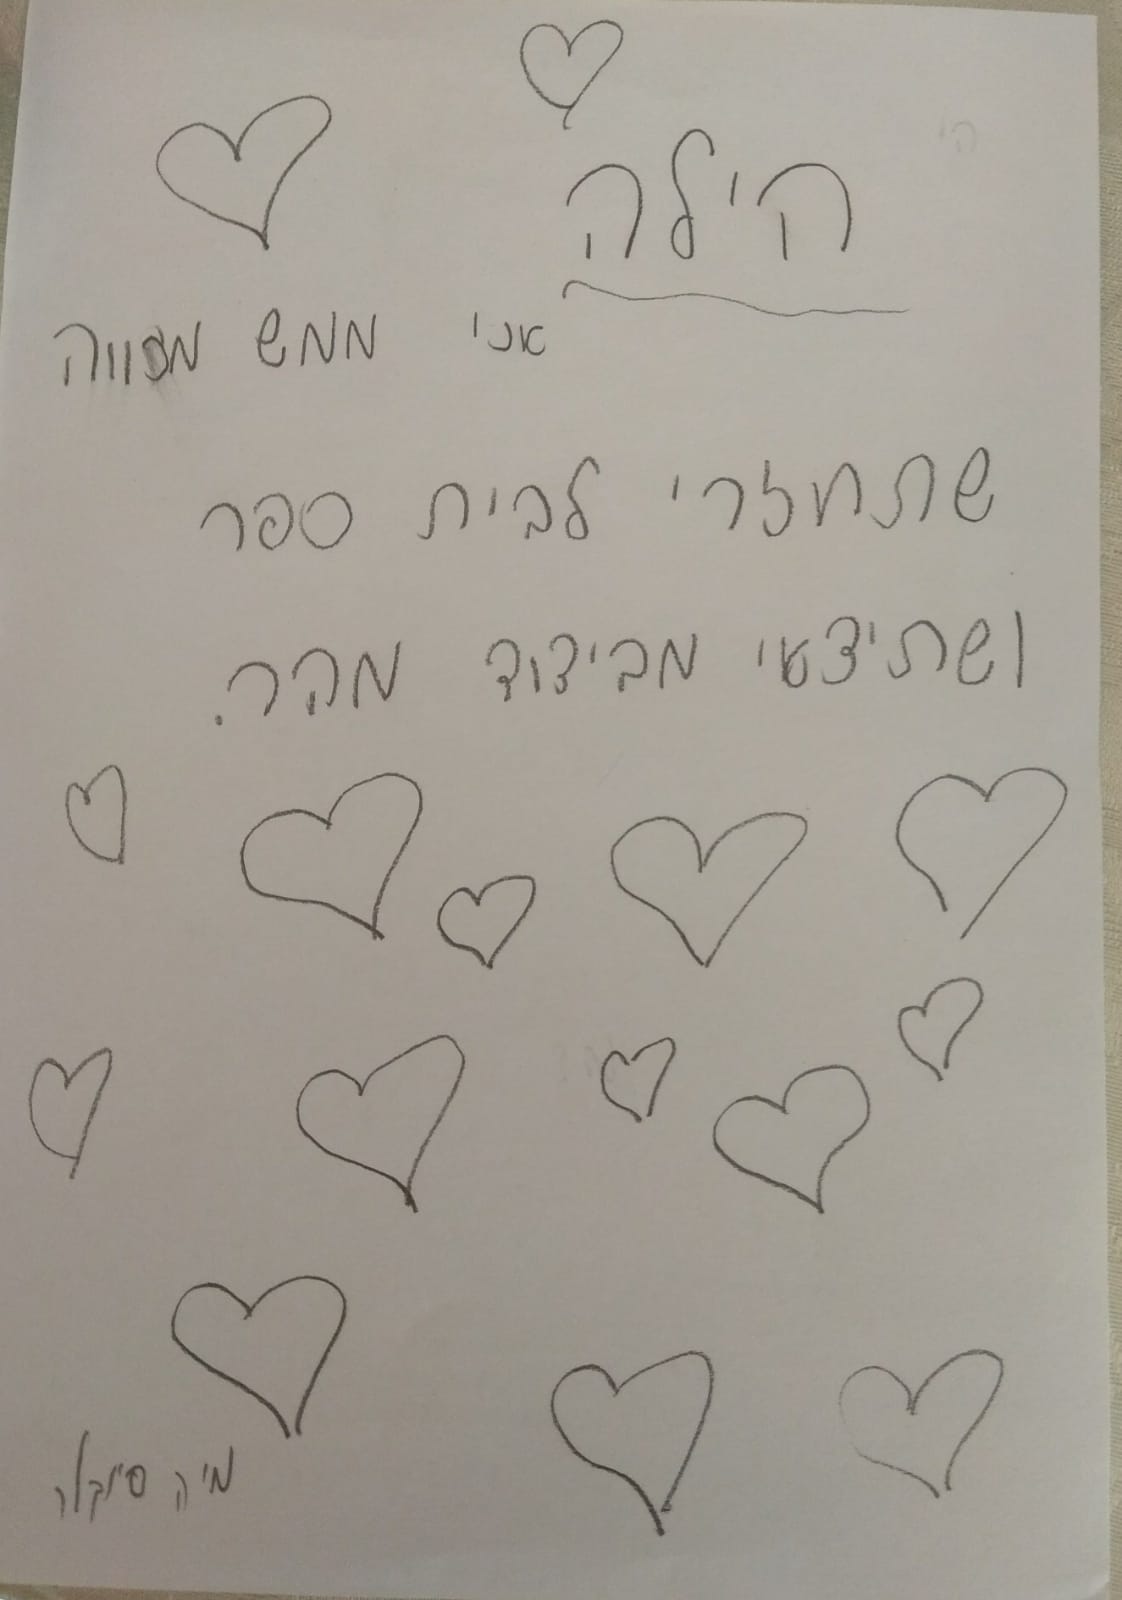 הילה
אני ממש מקווה
שתחזרי לבית ספר
ושתיצאי מבידוד מהר.
מיה